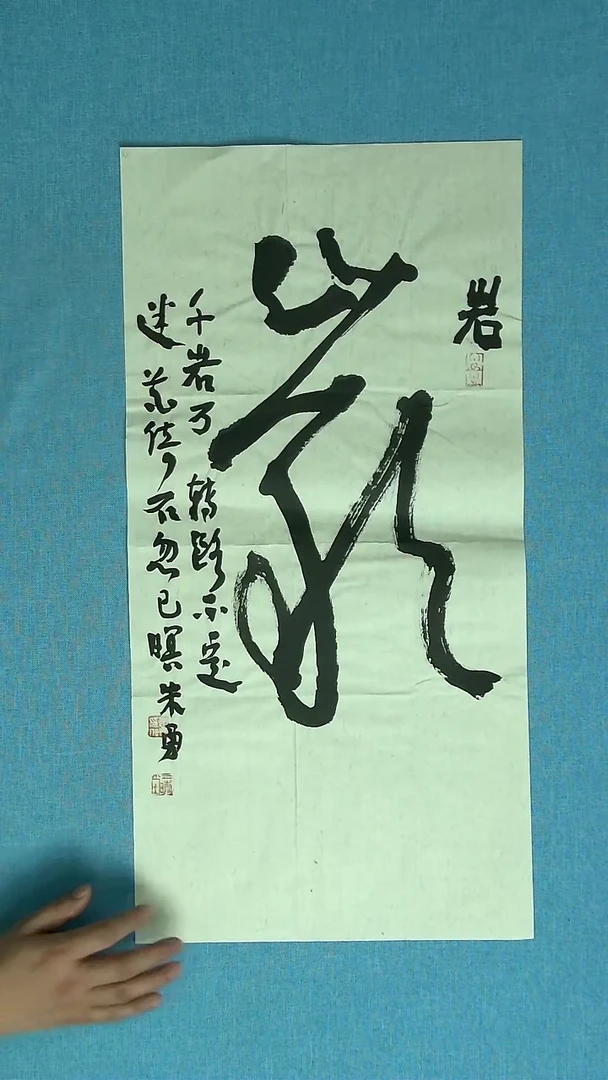 岩
巖
千岩万转路不定
迷花倚石忽已暝 朱勇